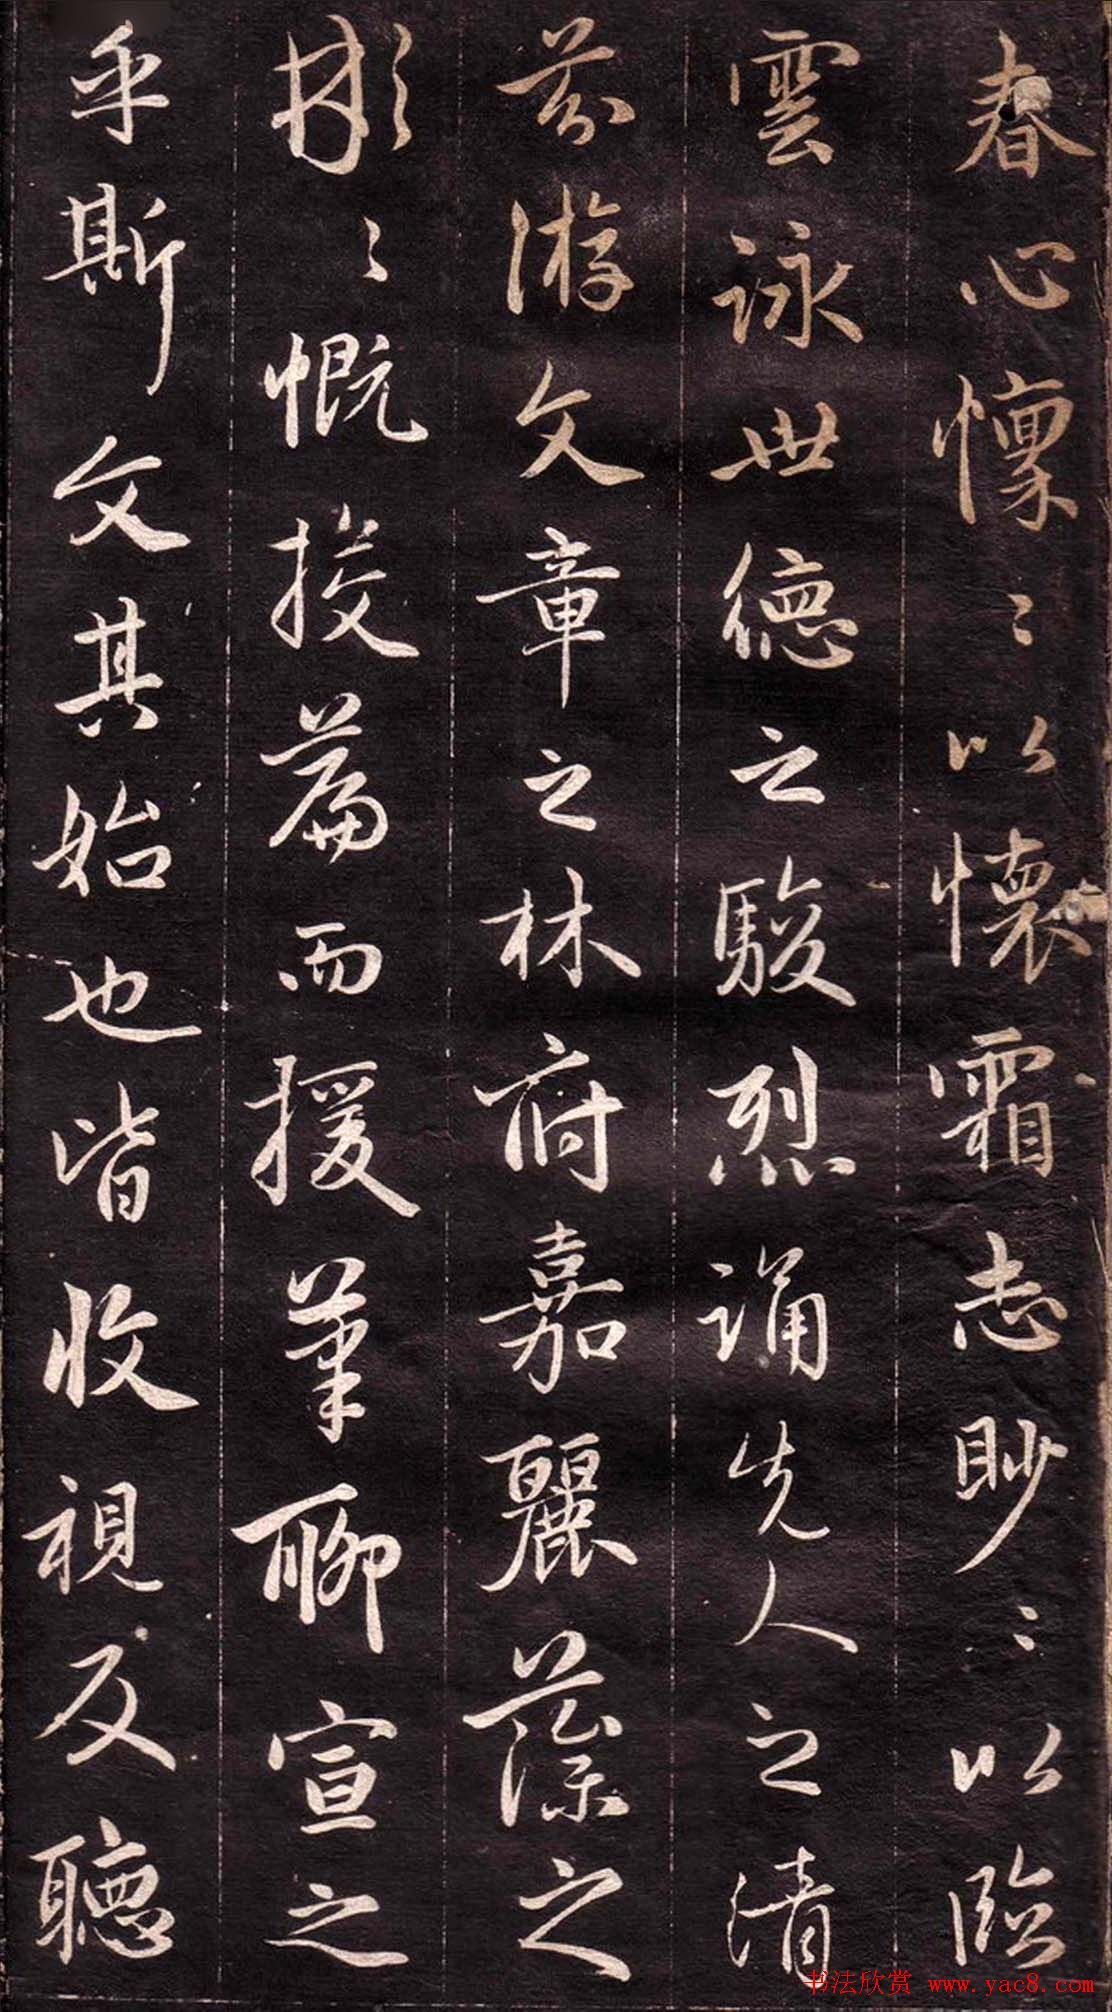 春心懍〻以懷霜志眇〻以臨
雲詠世德之駿烈誦先人之清
芬游文章之林府嘉麗藻之
彬〻慨投篇而援筆聊宣之
乎斯文其始也皆收視反聽
书法欣赏 www.yac8.com